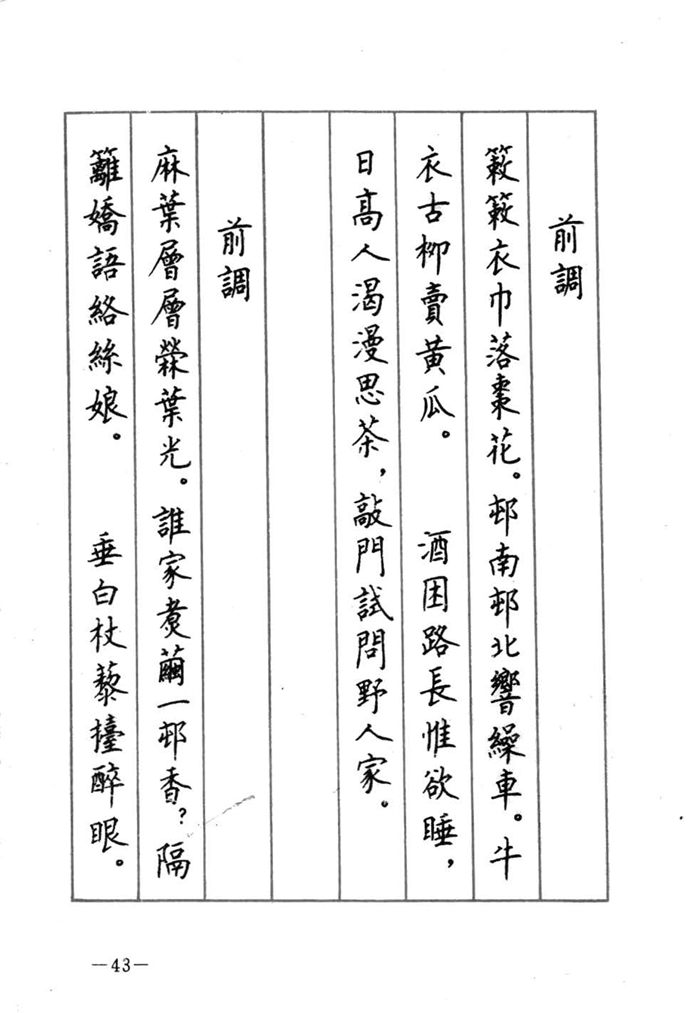 前調
簌簌衣巾落棗花。邨南邨北響繰車。牛
衣古柳賣黃瓜。　酒困路長惟欲睡，
日高人渴漫思茶，敲門試問野人家。
前調
麻葉層層檾葉光。誰家煑繭一邨香？隔
籬嬌語絡絲娘。　垂白杖藜擡醉眼。
—43—